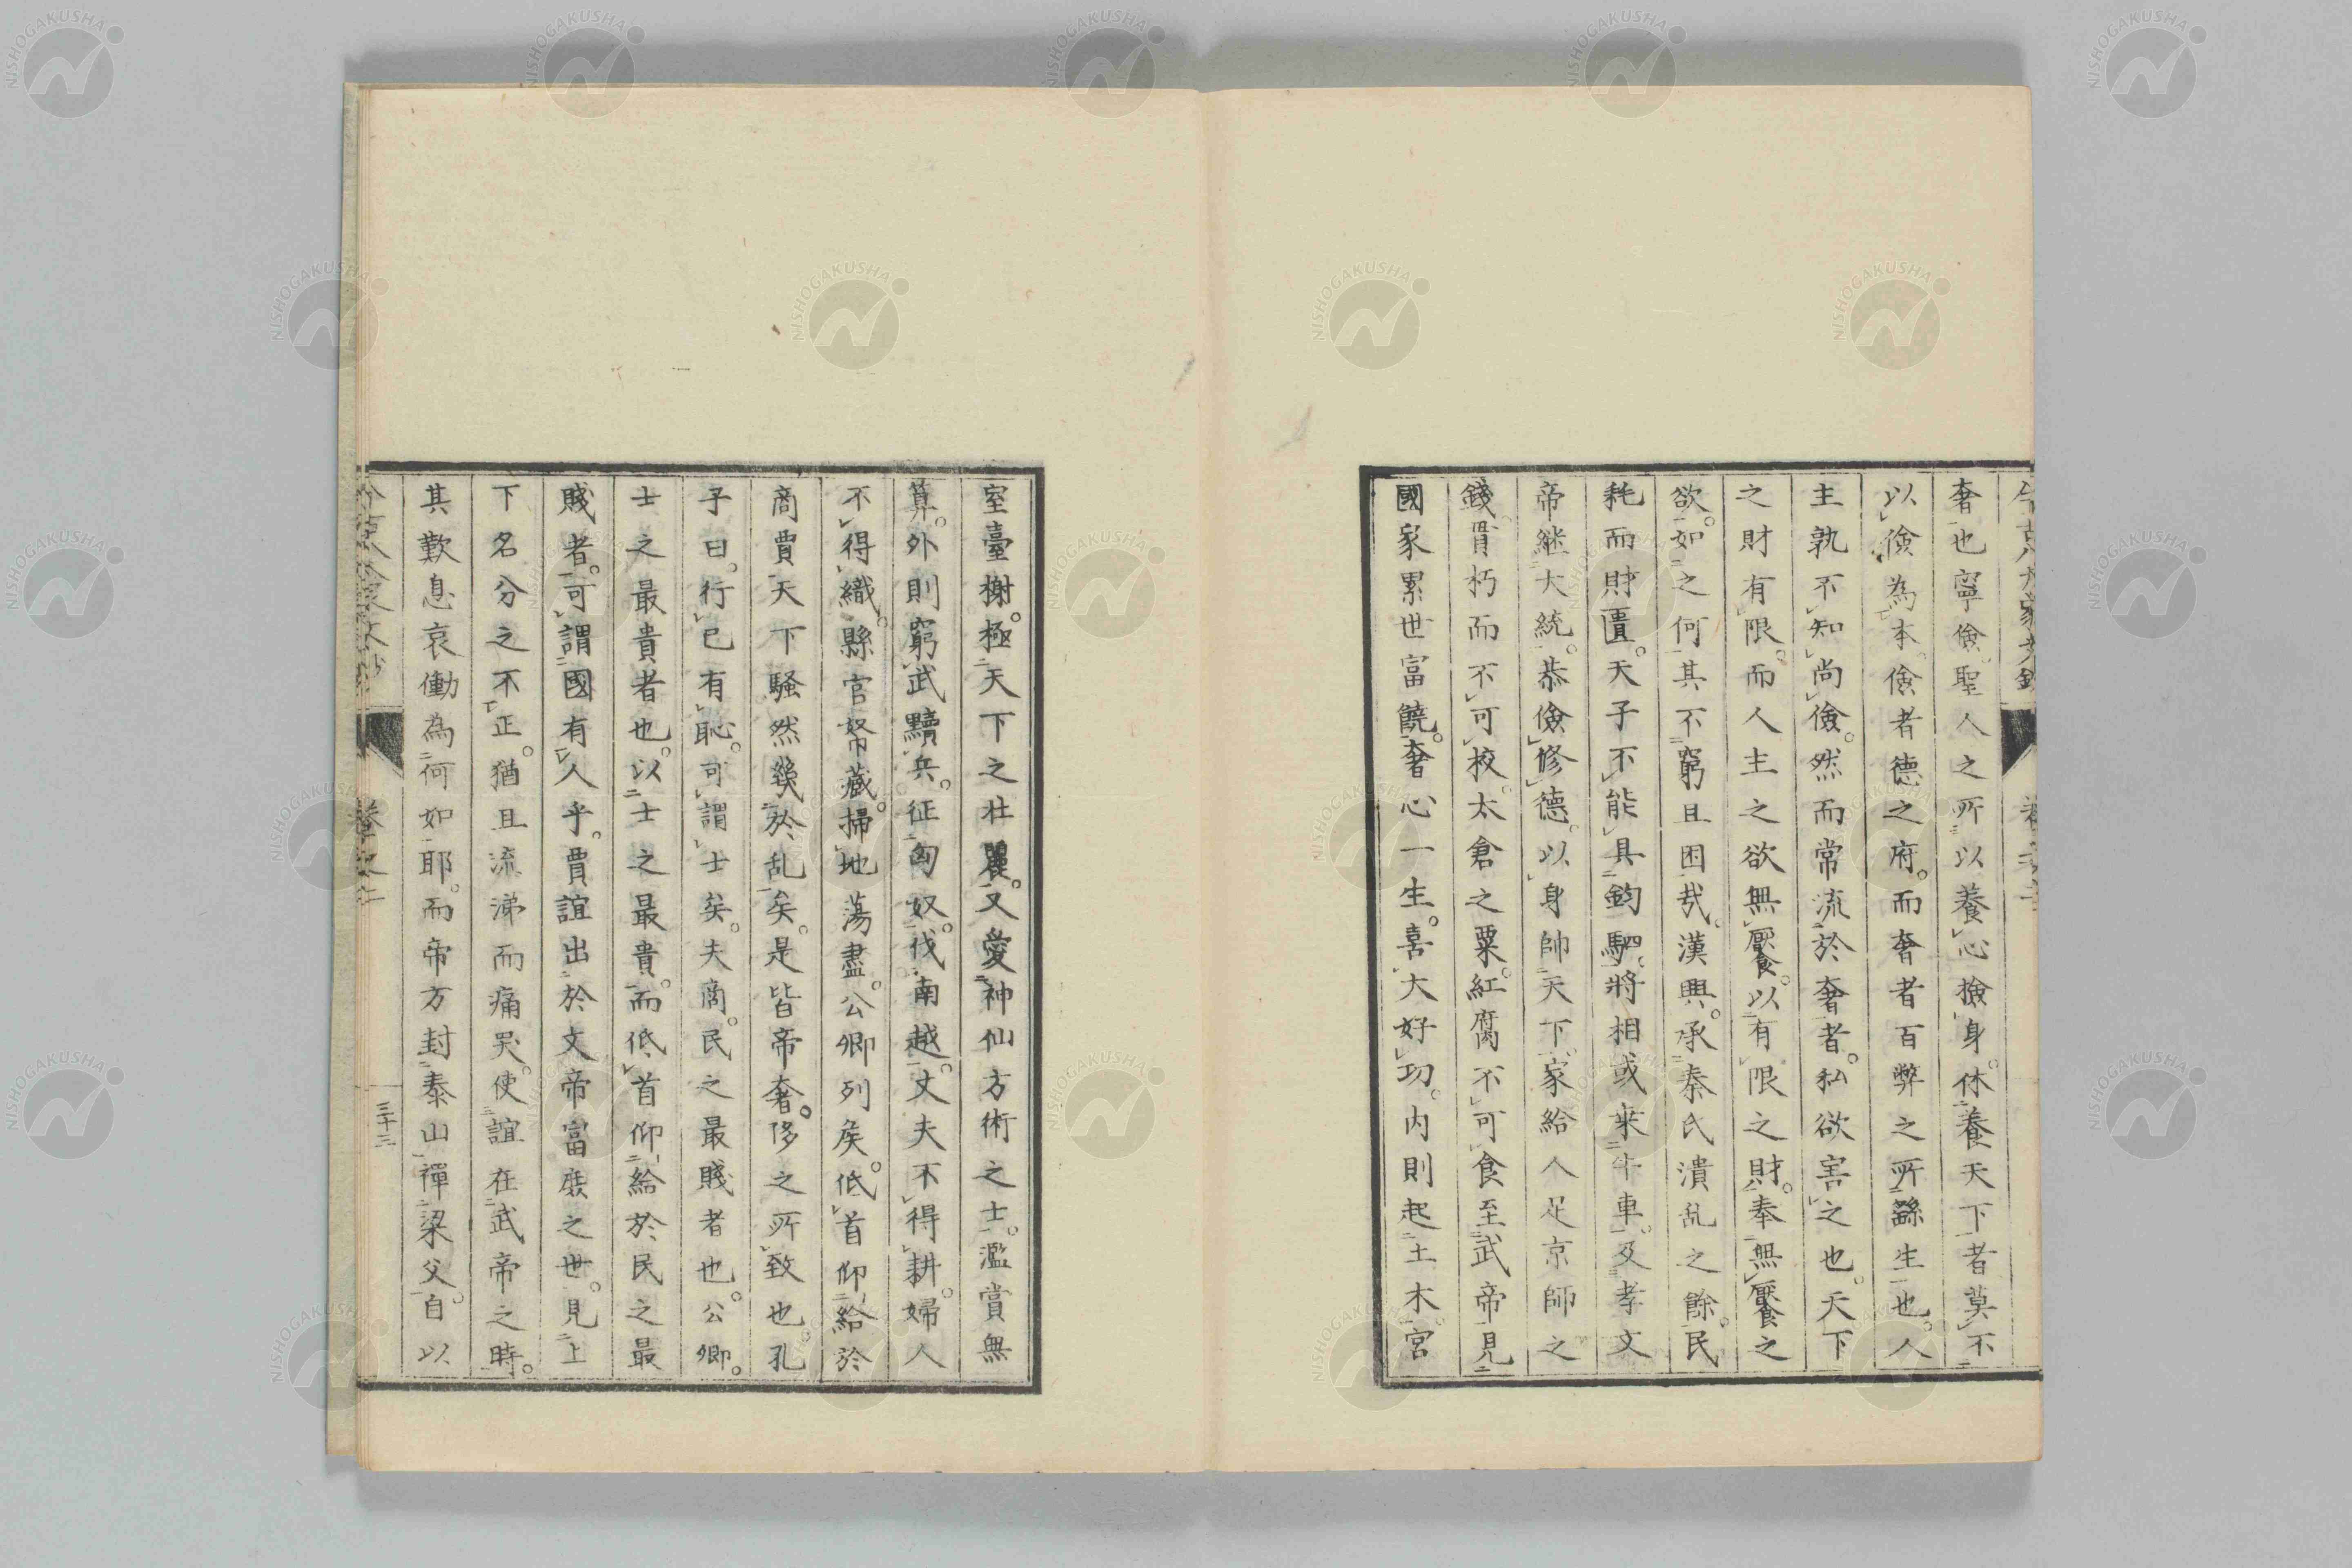 奢也寧儉聖人之所以養心撿身休養天下者莫不
以儉為本儉者德之府而奢者百弊之所繇生也人
主孰不知尚儉然而常流於奢者私欲害之也天下
之財有限而人主之欲無饜以有限之財奉無饜之
欲如之何其不窮且困哉漢興承秦氏潰乱之餘民
耗而財匱天子不能具鈞駟將相或乘牛車及孝文
帝継大統恭儉修德以身帥天下家給人足京師之
錢貫朽而不可校太倉之粟紅腐不可食至武帝見
國家累世富饒奢心一生喜大好功内則起土木宮
室臺榭極天下之壮麗又愛神仙方術之士濫賞無
算外則窮武黷兵征匈奴伐南越丈夫不得耕婦人
不得織縣官帑藏掃地蕩盡公卿列矦低首仰給於
商賈天下騒然幾於乱矣是皆帝奢侈之所致也孔
子曰行已有恥可謂士矣夫商民之最賤者也公卿
士之最貴者也以士之最貴而低首仰給於民之最
賤者可謂國有人乎賈誼出於文帝富庶之世見上
下名分之不正猶且流涕而痛哭使誼在武帝之時
其歎息哀慟為何如耶而帝方封泰山禪梁父自以
三十三
NISHOGAKUSHA